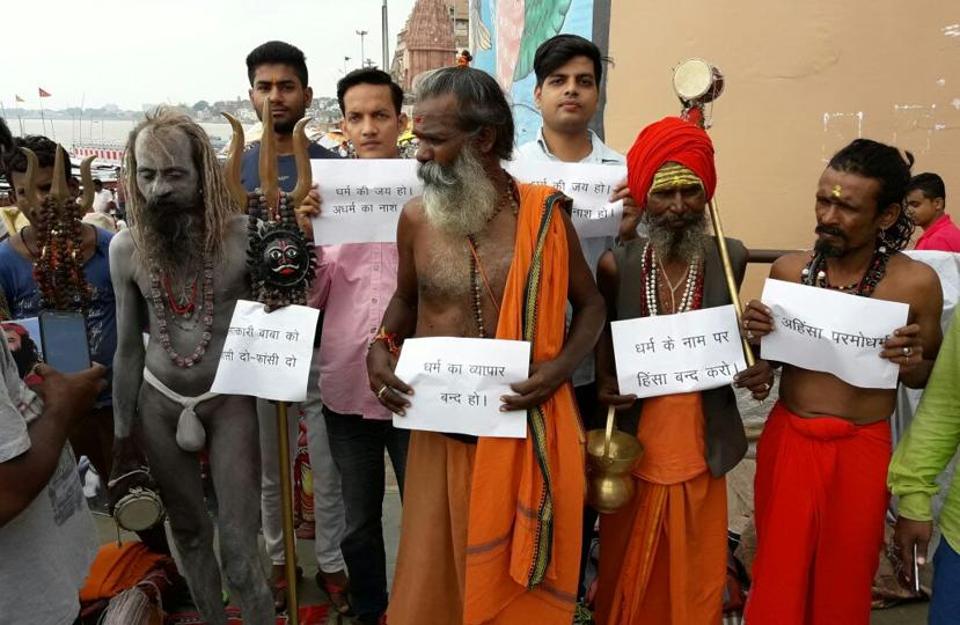 धर्म की जय हो।
अधर्म का नाश हो।
धर्म की जय हो।
नाश हो।
बाबा को
दो-फांसी दो
धर्म का व्यापार
बन्द हो।
धर्म के नाम पर
हिंसा बन्द करो।
अहिंसा परमोधर्म